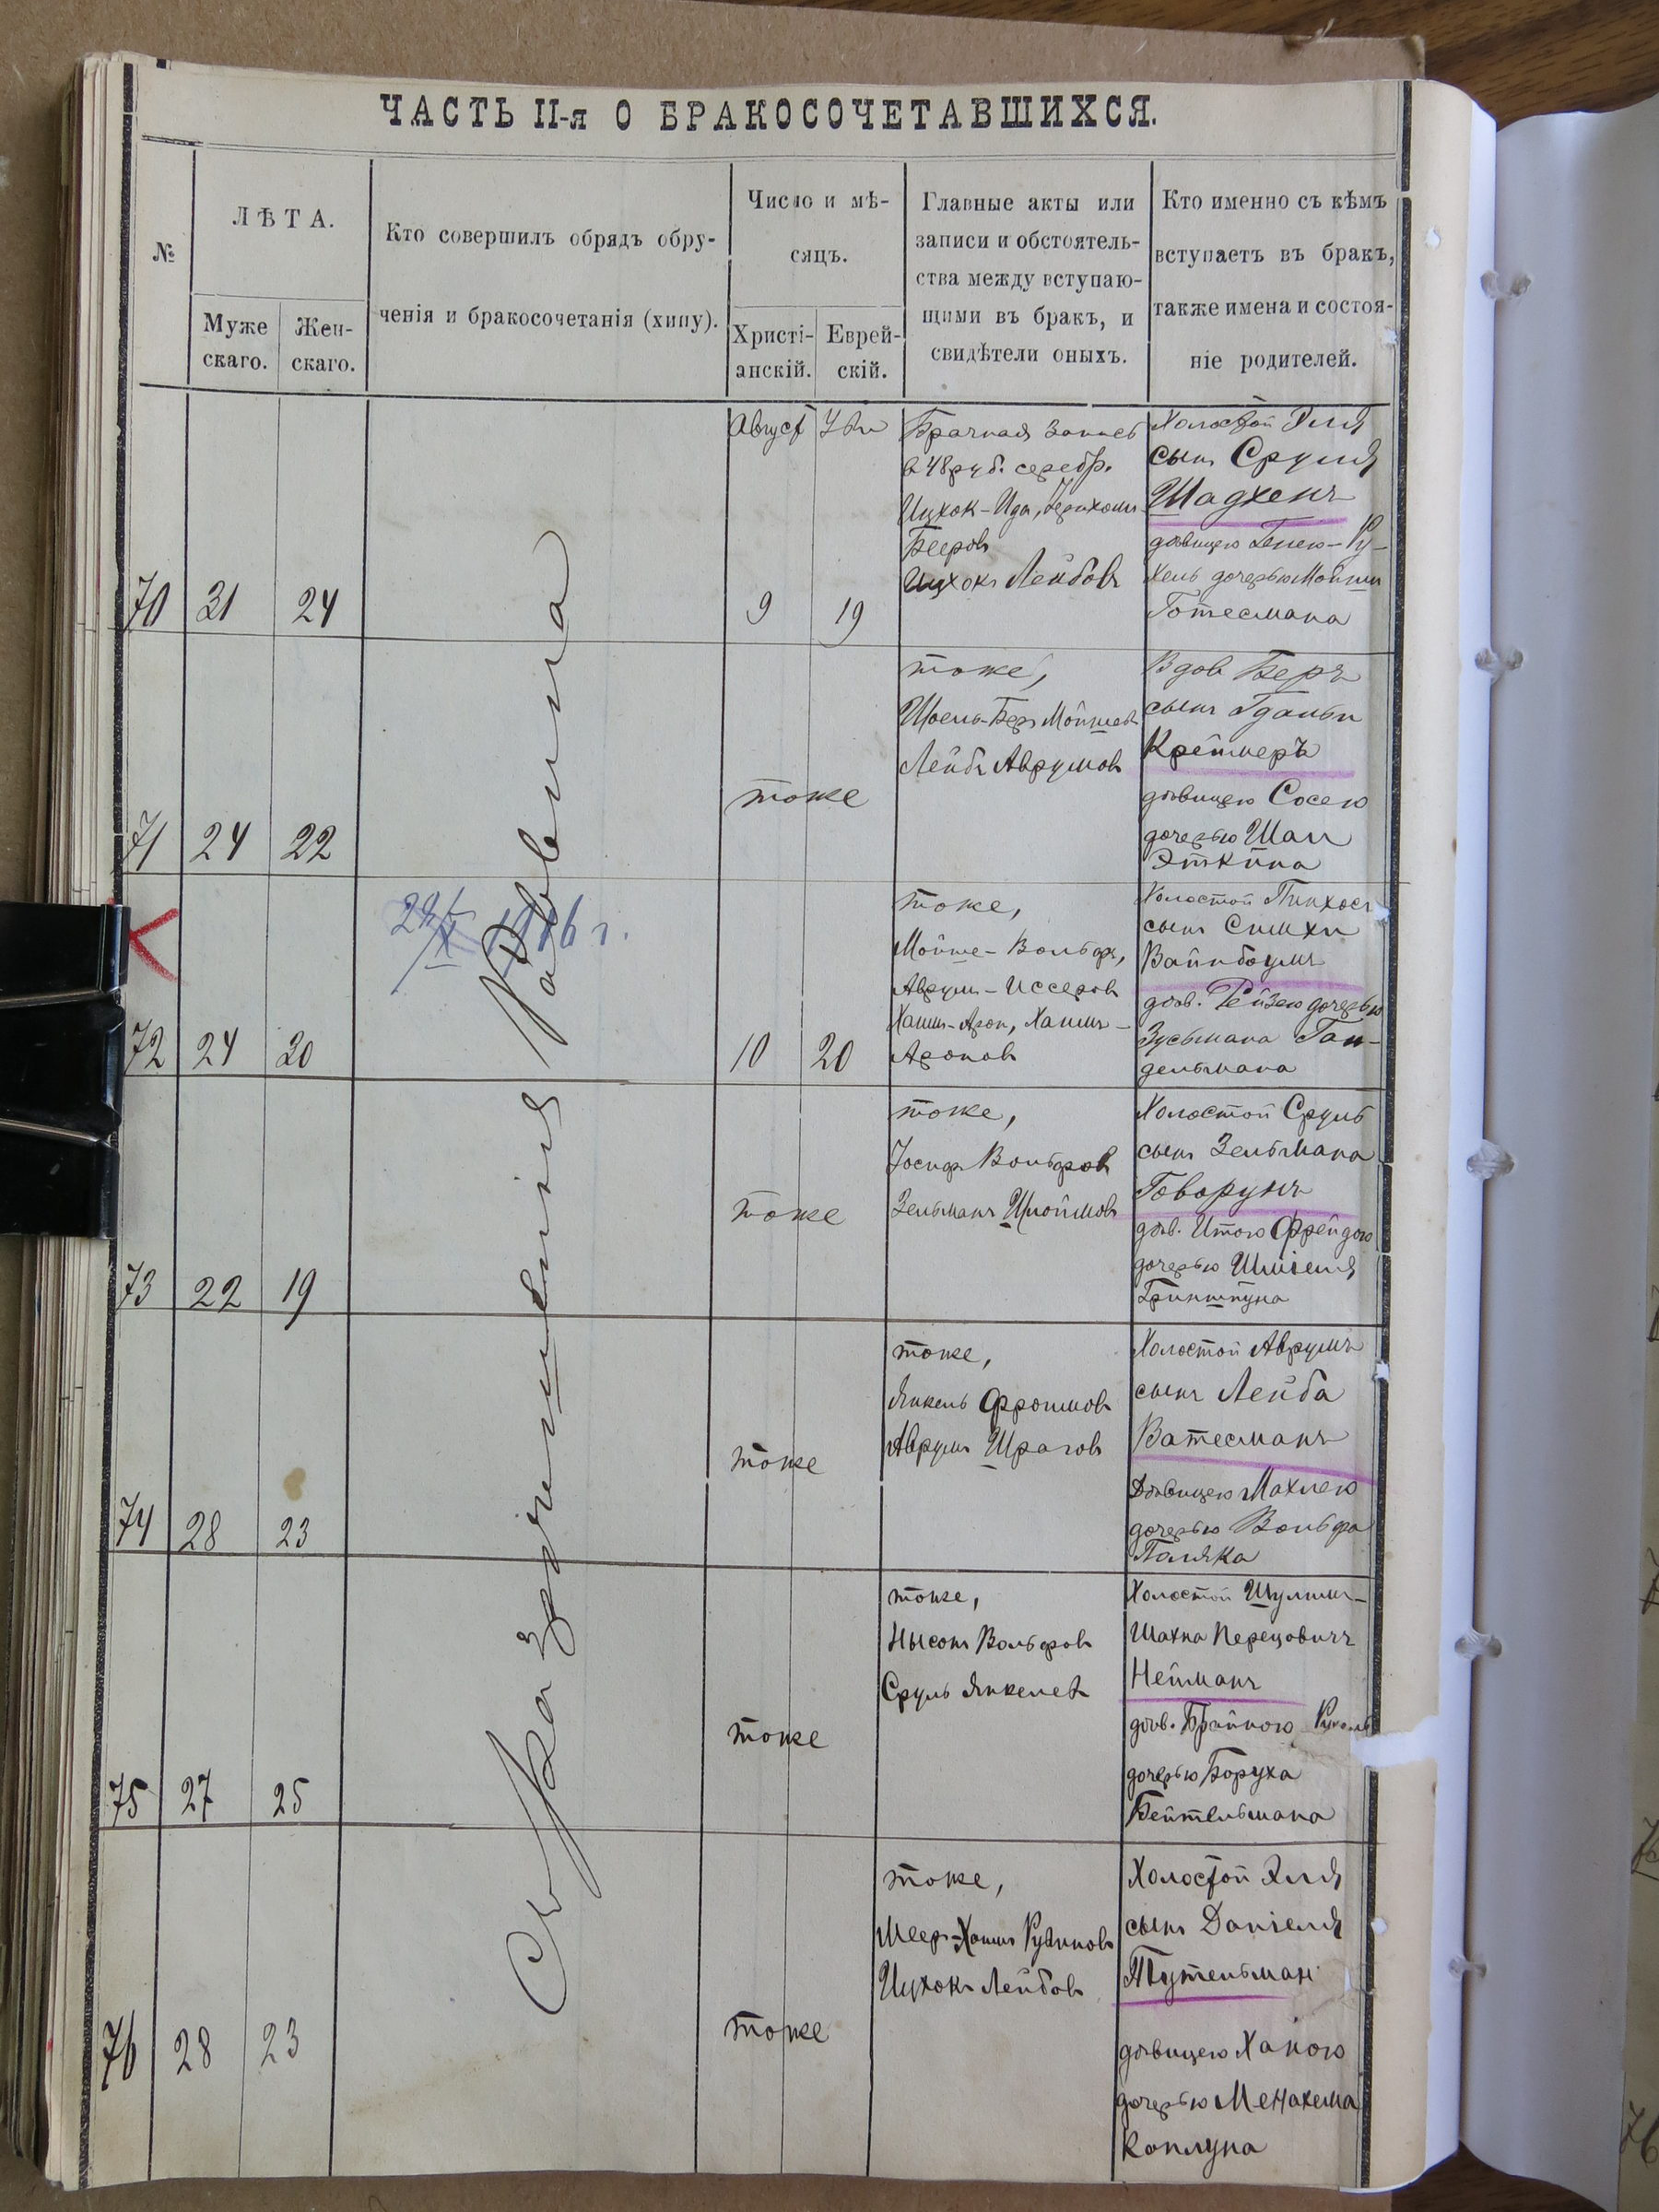 ЧАСТЬ II-я О БРАКОСОЧЕТАВШИХСЯ.
№
ЛѢТА.
Муже
скаго.
Жен-
скаго.
Кто совершилъ обрядъ обру-
ченія и бракосочетанія (хипу).
Число и мѣ-
сяцъ.
Христі-
анскій.
Еврей-
скій.
Главные акты или
записи и обстоятель-
ства между вступаю-
щими въ бракъ, и
свидѣтели оныхъ.
Кто именно съ кѣмъ
вступаетъ въ бракъ,
также имена и состоя-
ніе родителей.
С Казенный Раввинъ
70
31
24
Август
9
19
Брачная запись
в 48 руб. серебр.
Ицхок-Ида,
Бееров
Ицхокъ Лейбовъ
Холостой Эля
сынъ Сруля
Шадхенъ
дѣвицею Генею-Ру-
хель дочерью Мойши
Готесмана
71
24
22
тоже
тоже,
Шоель-Беръ Мойшев
Лейбъ Аврумов
Вдов Беръ
сынъ Гдальи
Крейтмеръ
дѣвицею Сосею
дочерью Шаи
Эткина
72
24
20
10
20
тоже,
Мойше-Вольфъ,
Аврумъ-Иссеров
Хаимъ-Арон, Хаимъ-
Аронов
Холостой Пинхосъ
сынъ Симхи
Вайнбаумъ
дѣв. Рейзею дочерью
Зусьмана Ган-
дельмана
73
22
19
тоже
тоже,
Іосифъ Вольфов
Зельманъ Шлоймов
Холостой Сруль
сынъ Зельмана
Говорунъ
дѣв. Итою Фрейдою
дочерью Шміеля
Гринштпуна
74
28
23
тоже
тоже,
Янкель Фроимов
Аврумъ Шрагов
Холостой Аврумъ
сынъ Лейба
Ватесманъ
Дѣвицею Махлею
дочерью Вольфа
Поляка
75
27
25
тоже
тоже,
Нысонъ Вольфов
Сруль Янкелев
Холостой Шулимъ-
Шахна Перецовичъ
Нейманъ
дѣв. Брайною Рухель
дочерью Боруха
Бейтельмана
76
28
23
тоже
тоже,
Меер-Хаимъ Рувинов
Ицхокъ Лейбов
Холостой Эля
сынъ Даніеля
Тутельман
дѣвицею Ханою
дочерью Менахема
Каплуна